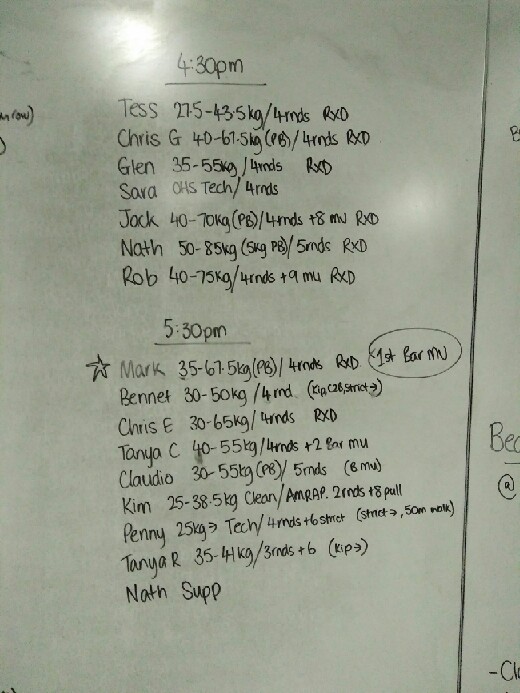 4:30pm
Tess 27.5-43.5kg/4rnds RXD
Chris G 40-67.5kg(PB)/4rnds RXD
Glen 35-55kg/4rnds RXD
Sara OHS Tech/4rnds
Jack 40-70kg(PB)/4rnds +8 mu RXD
Nath 50-85kg(5kg PB)/5rnds RXD
Rob 40-75kg/4rnds +9 mu RXD
5:30pm
☆ Mark 35-67.5kg(PB)/4rnds RXD 1st Bar MU
Bennet 30-50kg/4rnd (Kip C2B, strict→)
Chris E 30-65kg/4rnds RXD
Tanya C 40-55kg/4rnds +2 Bar mu
Claudio 30-55kg(PB)/5rnds (B mu)
Kim 25-38.5kg Clean/AMRAP. 2rnds +8 pull
Penny 25kg→ Tech/4rnds +6 strict (strict→, 50m walk)
Tanya R 35-41kg/3rnds +6 (Kip→)
Nath Supp
Bec
@
-Cl